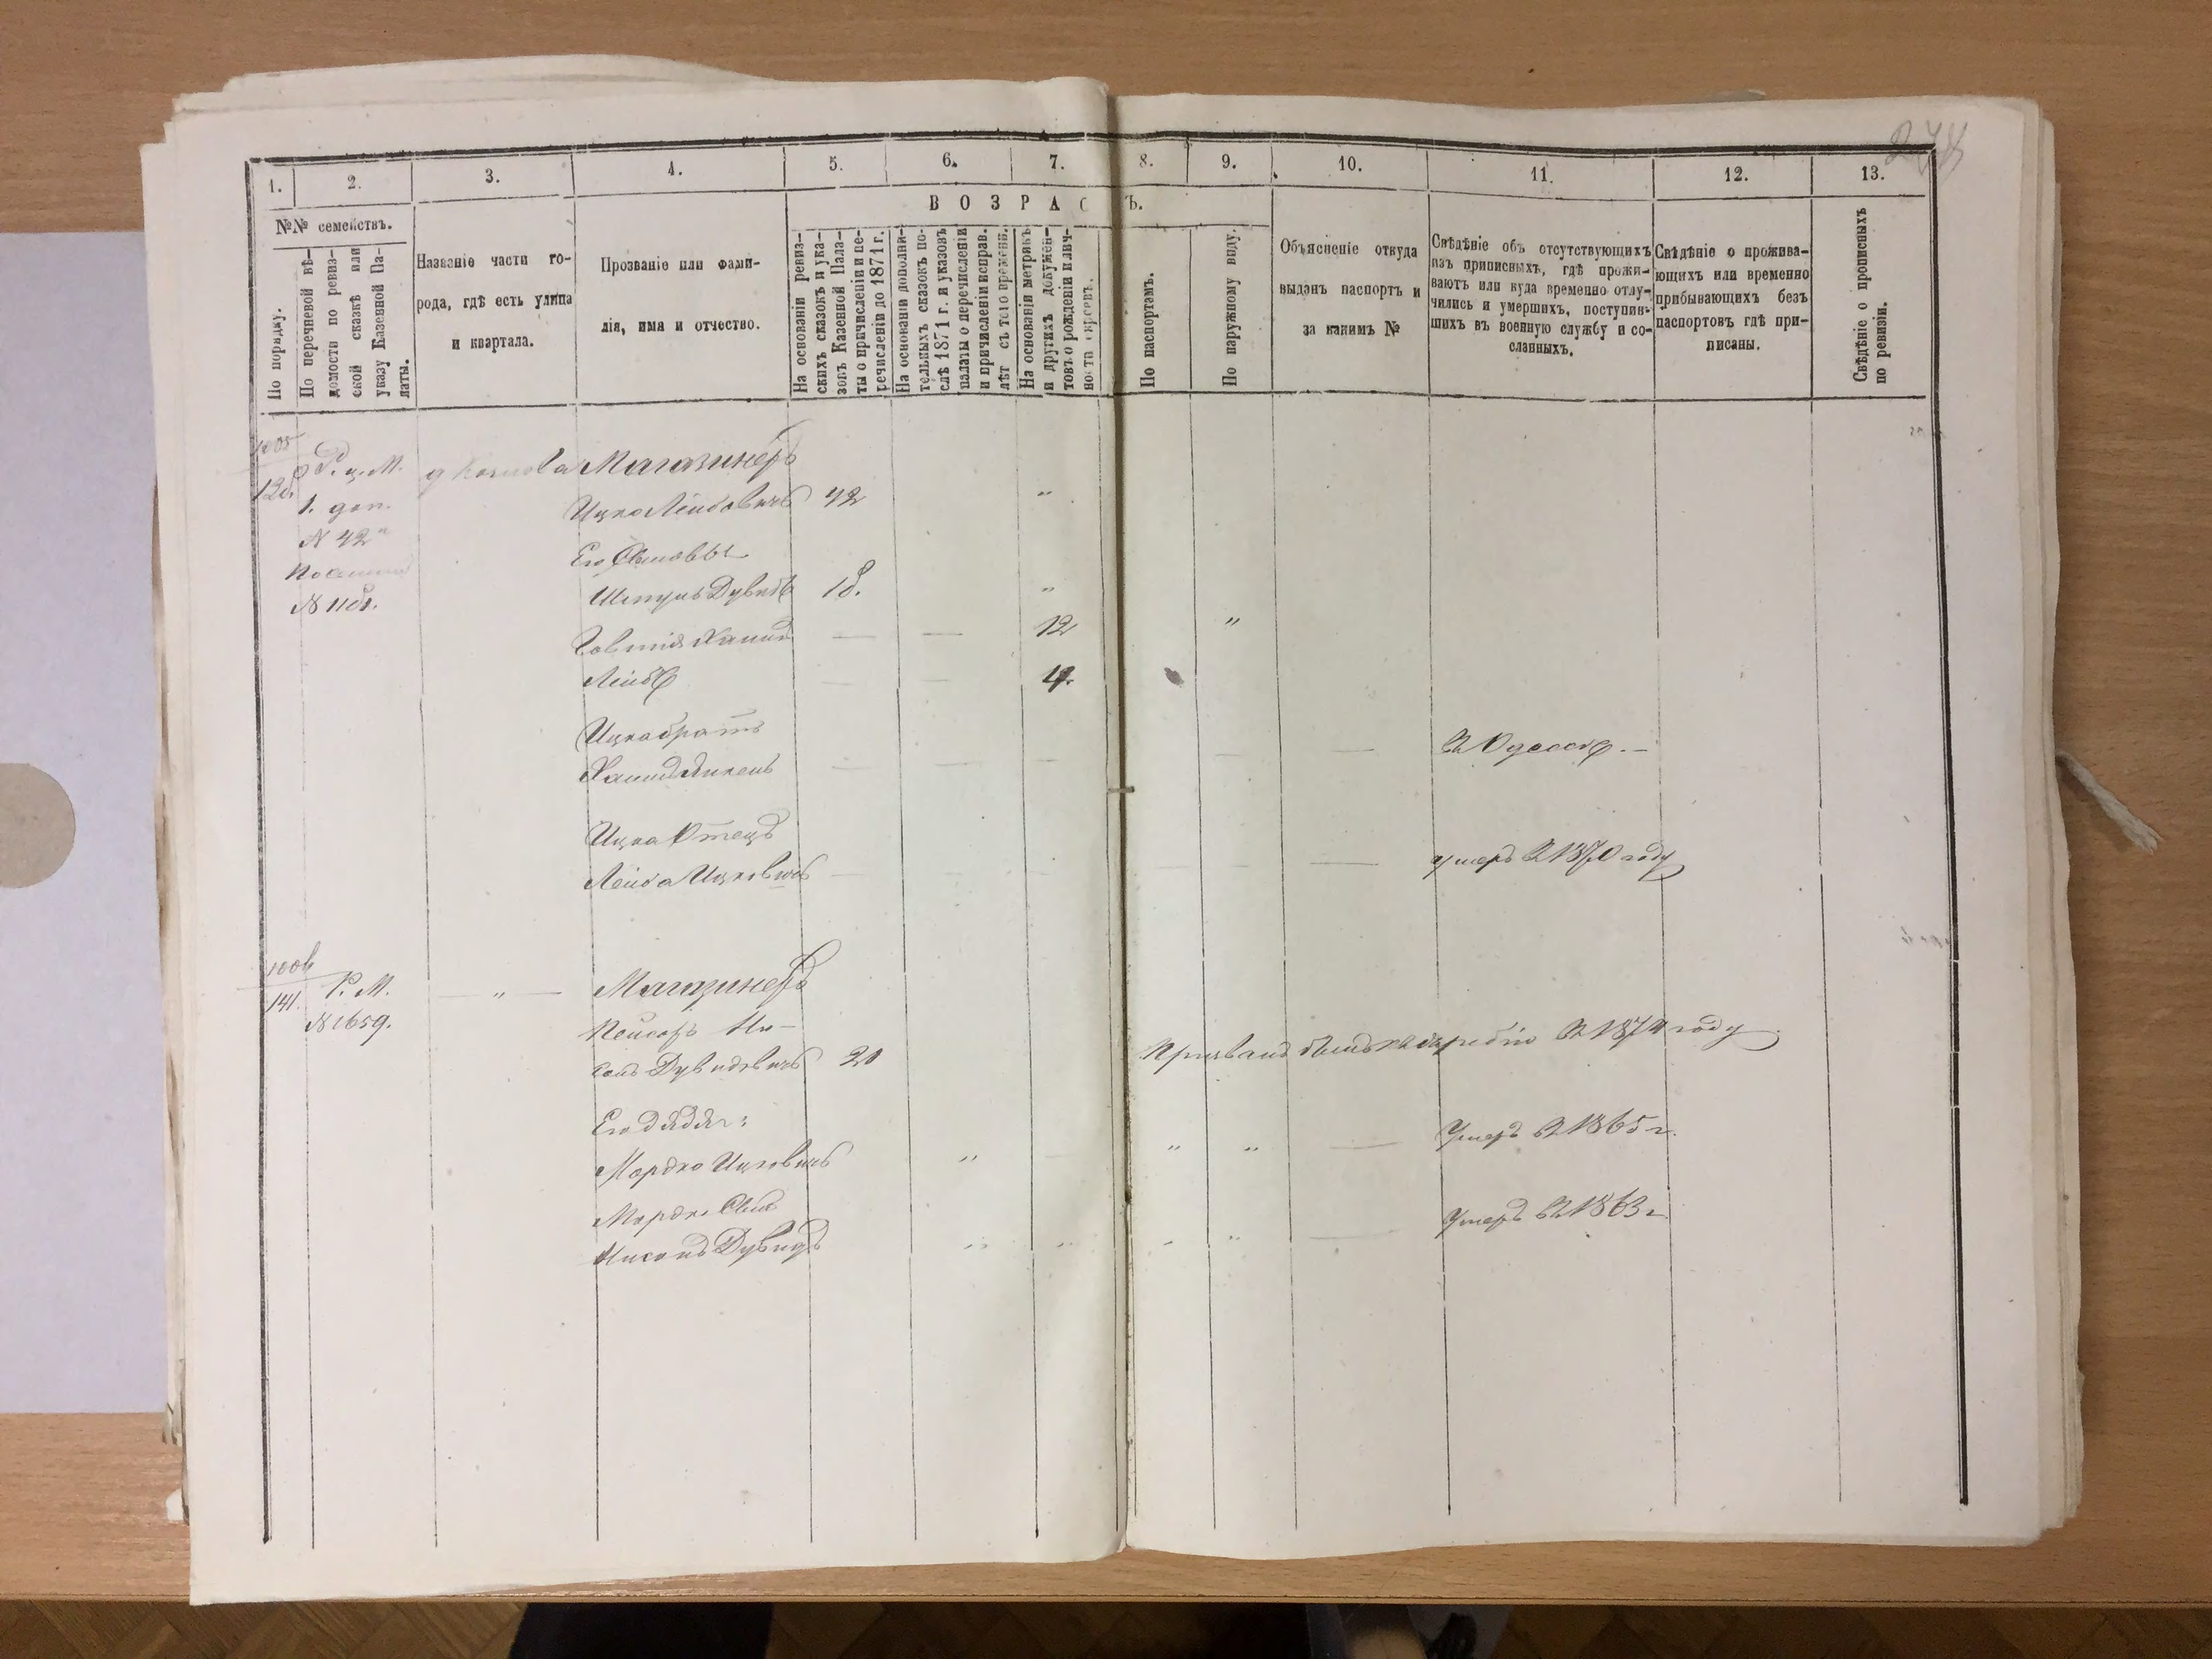 274
1. 2. 3. 4. 5. 6. 7. 8. 9. 10. 11. 12. 13.
№№ семействъ.
ВОЗРАС Ъ.
По порядку.
По перечневой вѣ-
домости по ревиз-
ской сказкѣ или
указу Казенной Па-
латы.
Названіе части го-
рода, гдѣ есть улица
и квартала.
Прозваніе или фами-
лія, имя и отчество.
На основаніи ревиз-
скихъ сказокъ и ука-
зовъ Казенной Пала-
ты о причисленіи и пе-
речисленіи до 1871 г.
На основаніи дополни-
тельныхъ сказокъ по-
слѣ 1871 г. и указовъ
палаты о перечисленіи
и причисленіи исправ.
лѣт съ того времени.
На основаніи метрикъ
и другихъ докумен-
товъ о рожденіи и лич-
ности евреевъ.
По паспортамъ.
По наружному виду.
Объясненіе откуда
выданъ паспортъ и
за какимъ №
Свѣдѣніе объ отсутствующихъ
изъ приписныхъ, гдѣ прожи-
ваютъ или куда временно отлу-
чились и умершихъ, поступив-
шихъ въ военную службу и со-
сланныхъ.
Свѣдѣніе о прожива-
ющихъ или временно
прибывающихъ безъ
паспортовъ гдѣ при-
писаны.
Свѣдѣніе о прописныхъ
по ревизіи.
1005 Р. ц. М. Магазинеръ
1. доп. Ицко Лейбовичъ 42 "
N 42
Его Сыновья
N 1101. Шмуль Дувидъ 18. "
Хаимъ — — 12 "
Лейбъ — — 4.
Ицка братъ
Хаимъ Янкель — — — — — въ Одессѣ. —
Ицка Отецъ
Лейба Ицковичъ — — — — — умеръ въ 1870 году
1006
141. Р. М. — " — Магазинеръ
N 1659. Пейсахъ Ни-
санъ Дувидовичъ 20 Призванъ былъ къ жребію въ 1874 году
Его дядя:
Мордко Ицковичъ " — " " — Умеръ въ 1865 г.
Мордки Сынъ
Нисонъ Дувидъ " " " " — Умеръ въ 1863 г.